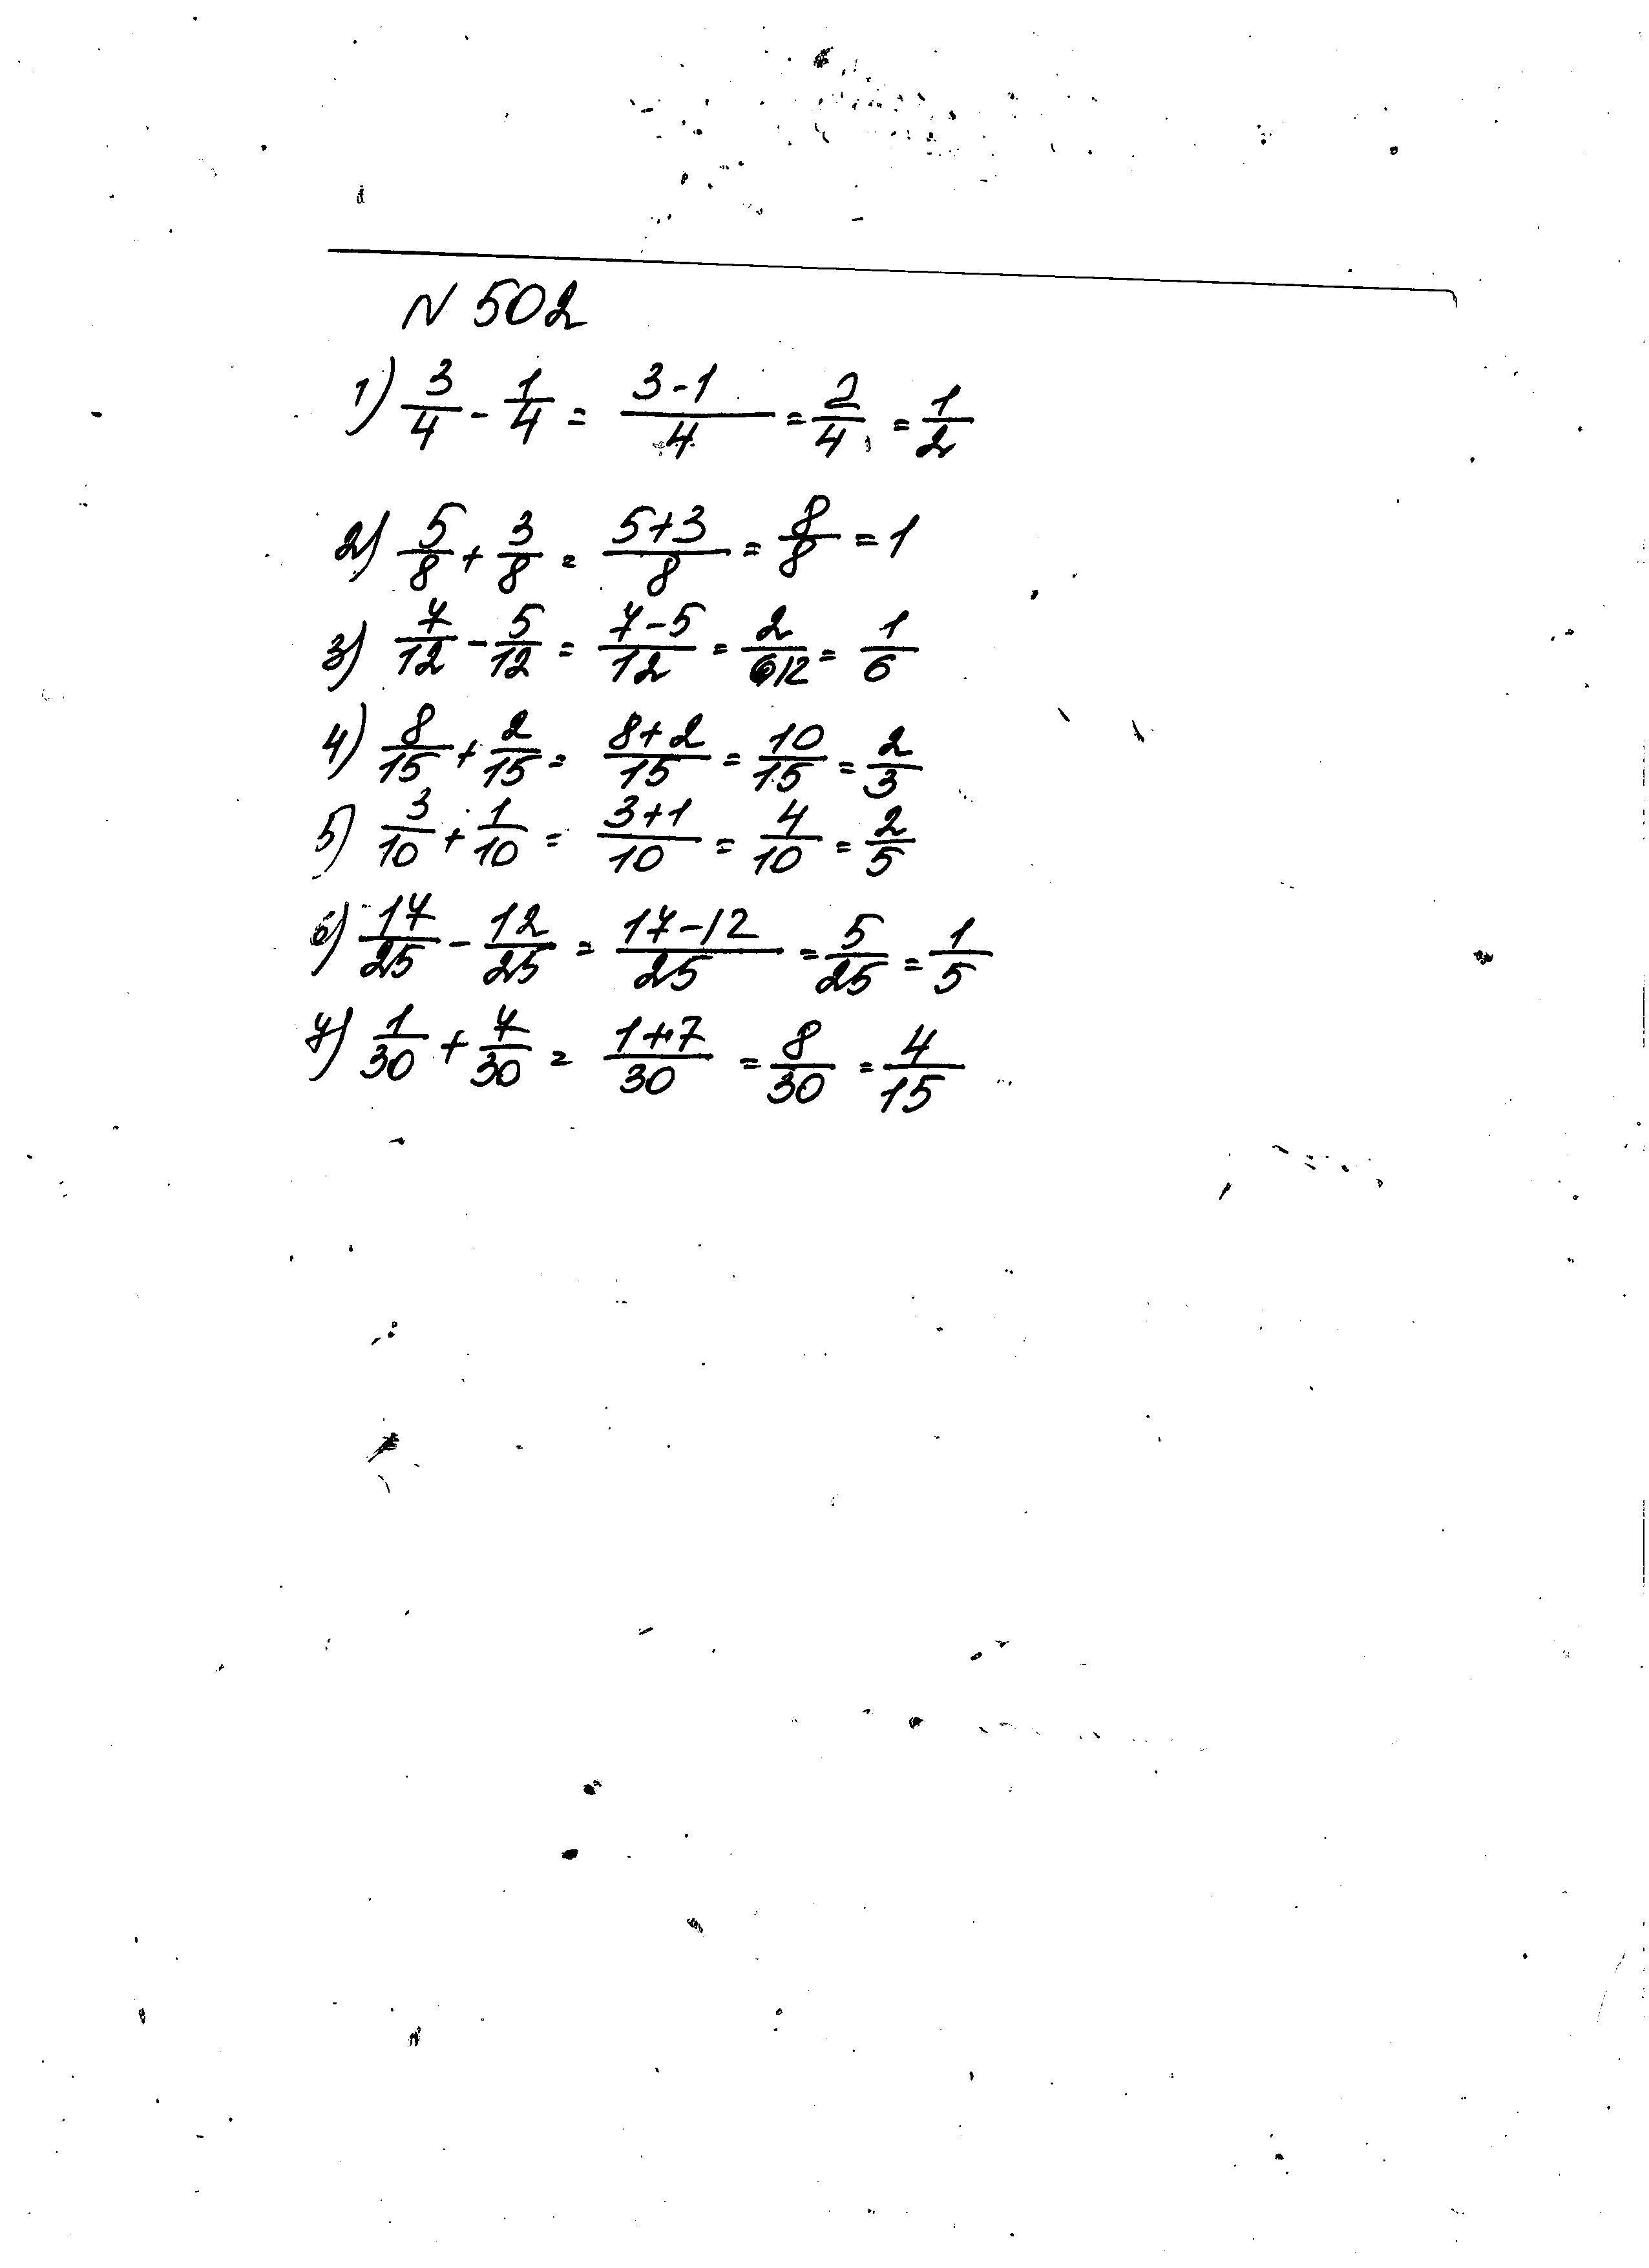 N 502
1) 3/4 - 1/4 = (3-1)/4 = 2/4 = 1/2
2) 5/8 + 3/8 = (5+3)/8 = 8/8 = 1
3) 7/12 - 5/12 = (7-5)/12 = 2/12 = 1/6
4) 8/15 + 2/15 = (8+2)/15 = 10/15 = 2/3
5) 3/10 + 1/10 = (3+1)/10 = 4/10 = 2/5
6) 17/25 - 12/25 = (17-12)/25 = 5/25 = 1/5
7) 1/30 + 7/30 = (1+7)/30 = 8/30 = 4/15